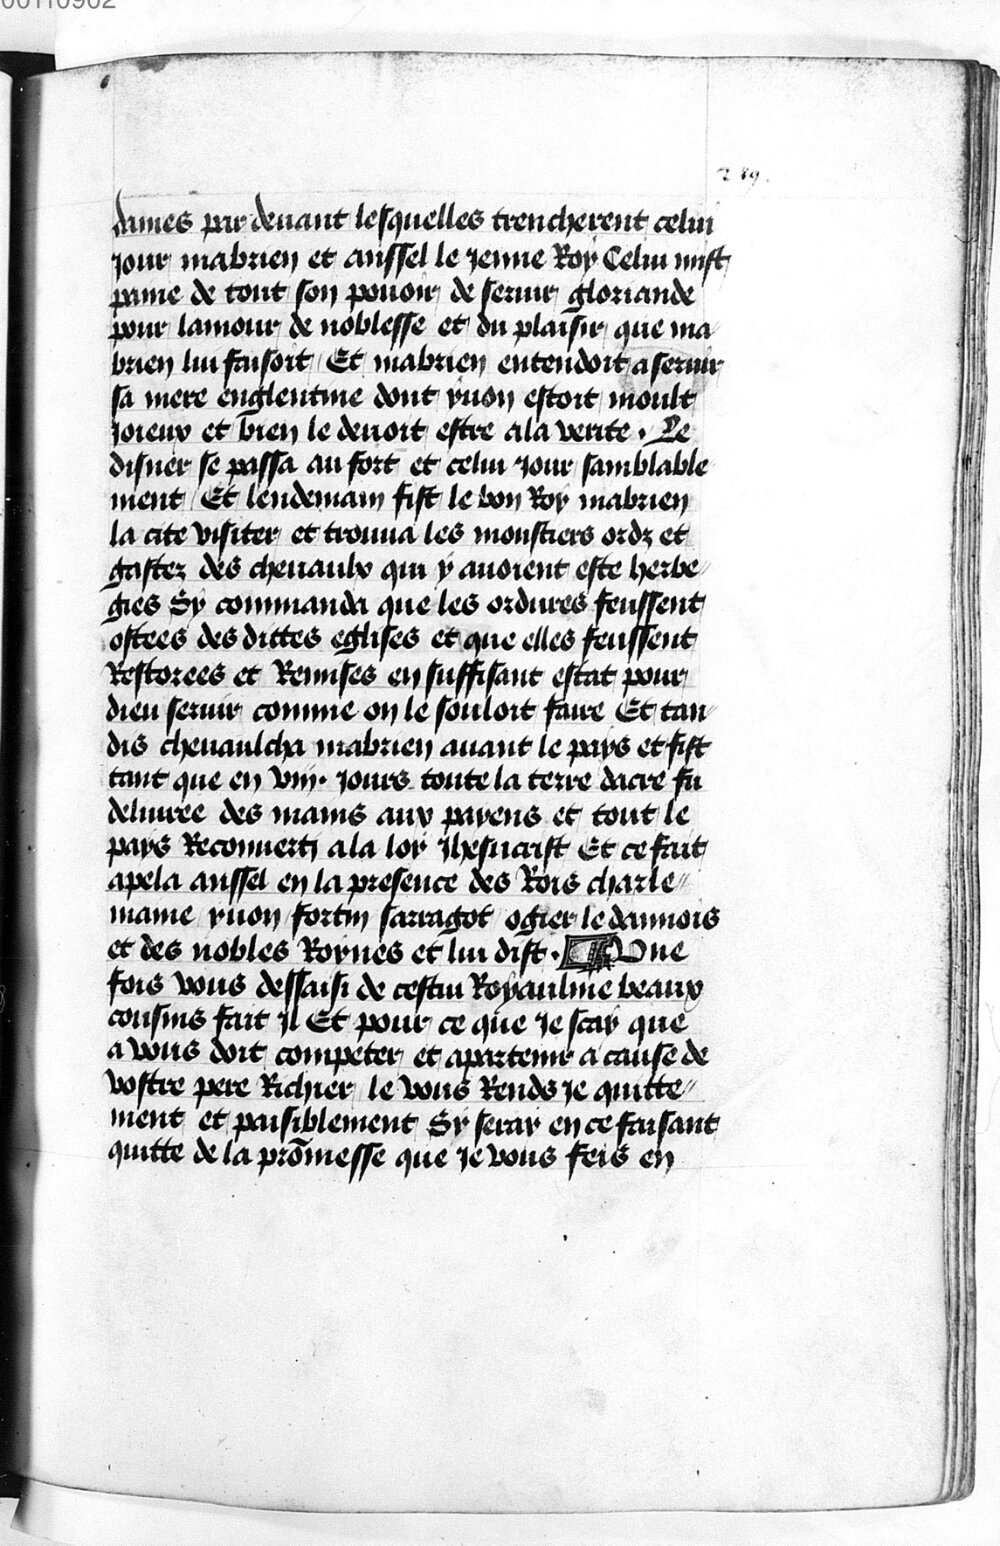 00110902
289.
dames par deuant lesquelles trencherent celui
jour mabrien et aussel le jenne Roy Celui mist
paine de tout son pouoir de seruir gloriande
pour lamour de noblesse et du plaisir que ma
brien lui faisoit Et mabrien entendoit a seruir
sa mere englentine dont yuon estoit moult
joieux et bien le deuoit estre a la verite . Le
disner se passa au fort et celui jour samblable
ment Et lendemain fist le bon Roy mabrien
la cite visiter et trouua les monstiers ordz et
gastez des cheuaulx qui y auoient este herbe//
gies Sy commanda que les ordures feussent
ostees des dittes eglises et que elles feussent
Restorees et Remises en suffisant estat pour
dieu seruir comme on le souloit faire Et tan
dis cheuaulcha mabrien auant le pays et fist
tant que en viii. jours toute la terre dacre fu
deliuree des mains aux payens et tout le
pays Reconuerti a la loy jhesucrist Et ce fait
apela aussel en la presence des Rois charle//
maine yuon fortin sarragot ogier le dannois
et des nobles Roynes et lui dist . Une
fois vous dessaisi de cestui Royaulme beaux
cousins fait jl Et pour ce que je scay que
a vous doit competer et apartenir a cause de
vostre pere Richier le vous Rends je quitte//
ment et paisiblement Sy seray en ce faisant
quitte de la promesse que je vous feis en